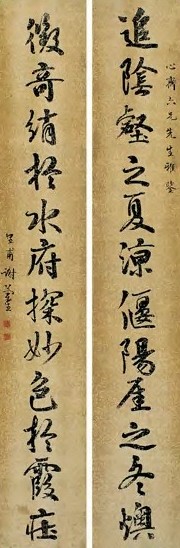 追陰壑之夏涼偃陽崖之冬燠
心齋六兄先生雅鑒
徵奇綃於水府探妙色於霞莊
呈甫謝